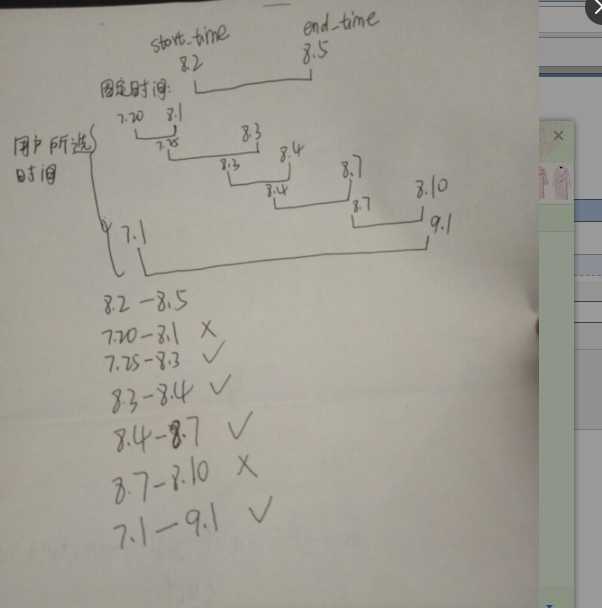 start_time end_time
8.2 8.5
固定时间:
7.20 8.1
7.25 8.3
8.3 8.4
8.4 8.7
8.7 8.10
用户所选
时间
7.1 9.1
8.2-8.5
7.20-8.1 ×
7.25-8.3 ✓
8.3-8.4 ✓
8.4-8.7 ✓
8.7-8.10 ×
7.1-9.1 ✓